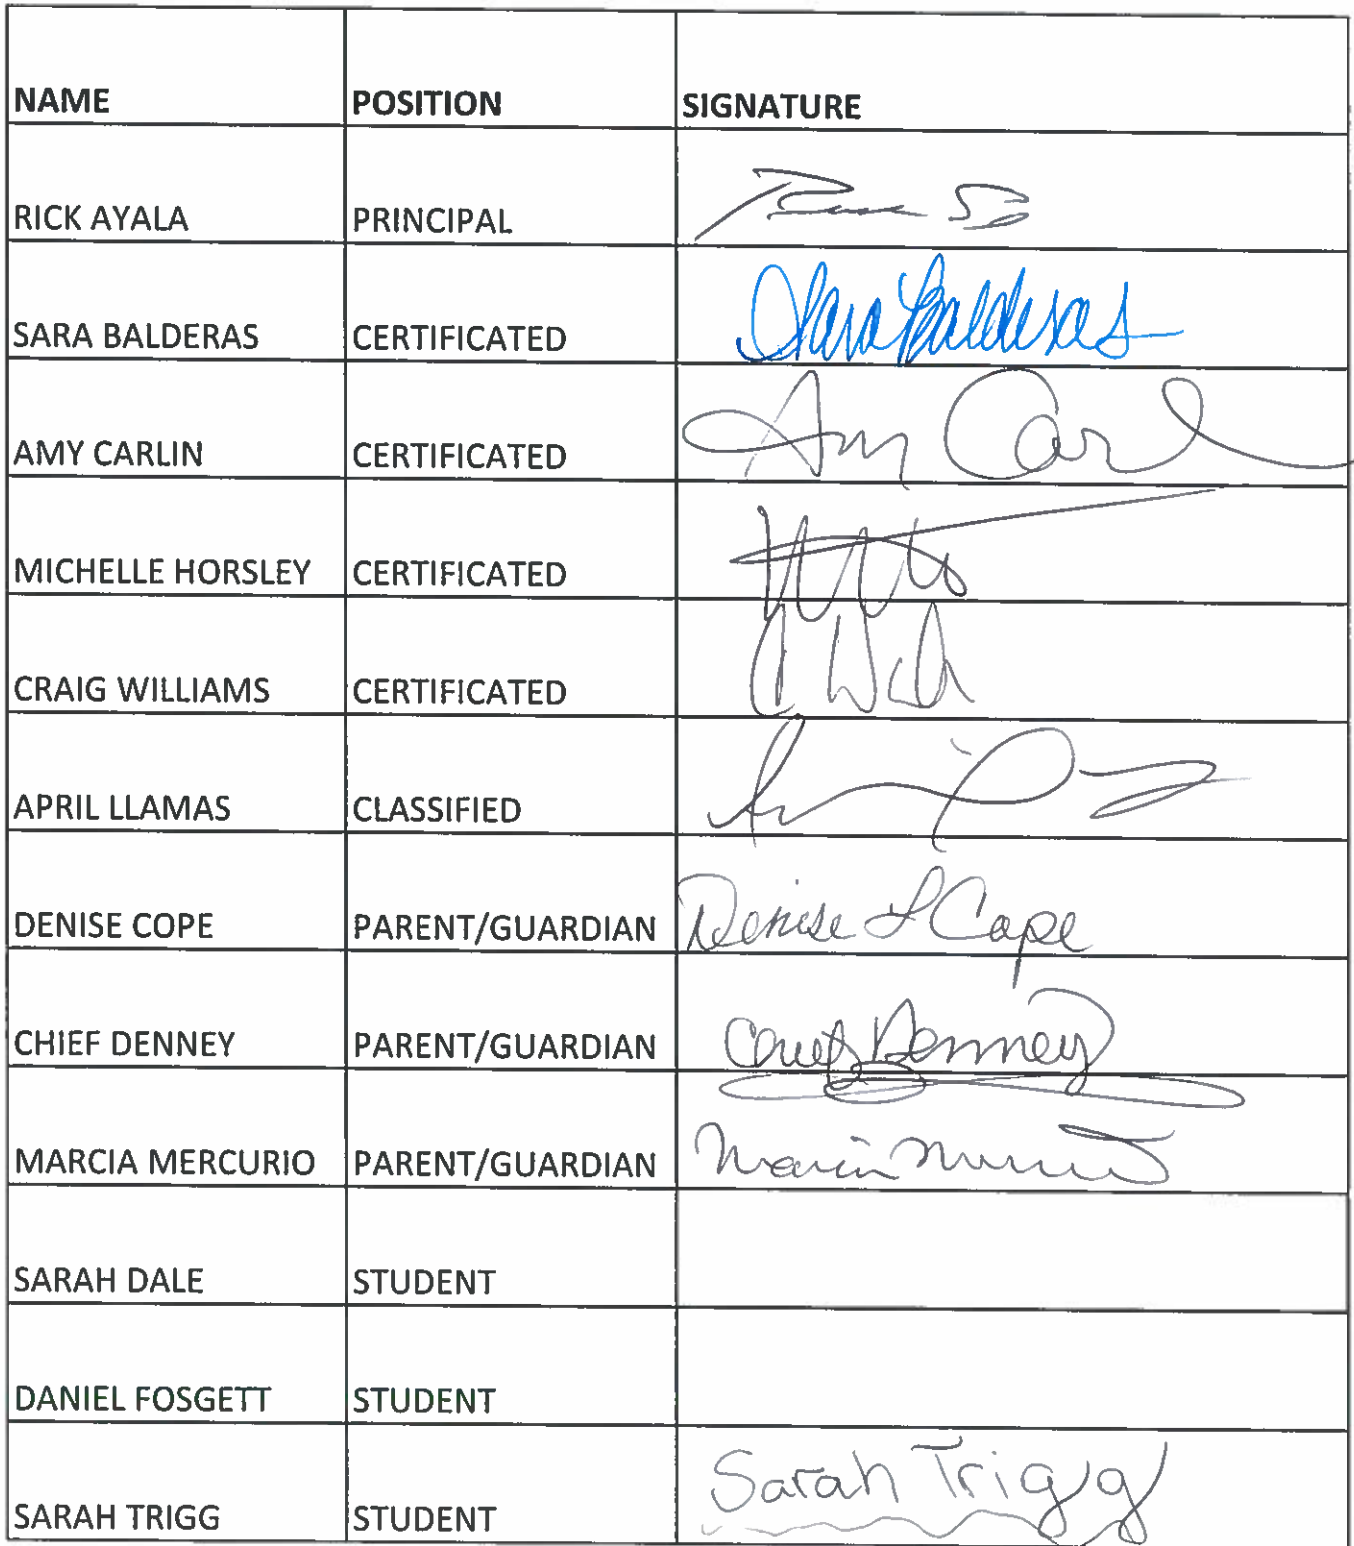 NAME POSITION SIGNATURE
RICK AYALA PRINCIPAL
SARA BALDERAS CERTIFICATED Sara Balderas
AMY CARLIN CERTIFICATED Amy Carl
MICHELLE HORSLEY CERTIFICATED
CRAIG WILLIAMS CERTIFICATED
APRIL LLAMAS CLASSIFIED
DENISE COPE PARENT/GUARDIAN Denise L Cope
CHIEF DENNEY PARENT/GUARDIAN Chief Denney
MARCIA MERCURIO PARENT/GUARDIAN Marcia
SARAH DALE STUDENT
DANIEL FOSGETT STUDENT
SARAH TRIGG STUDENT Sarah Trigg